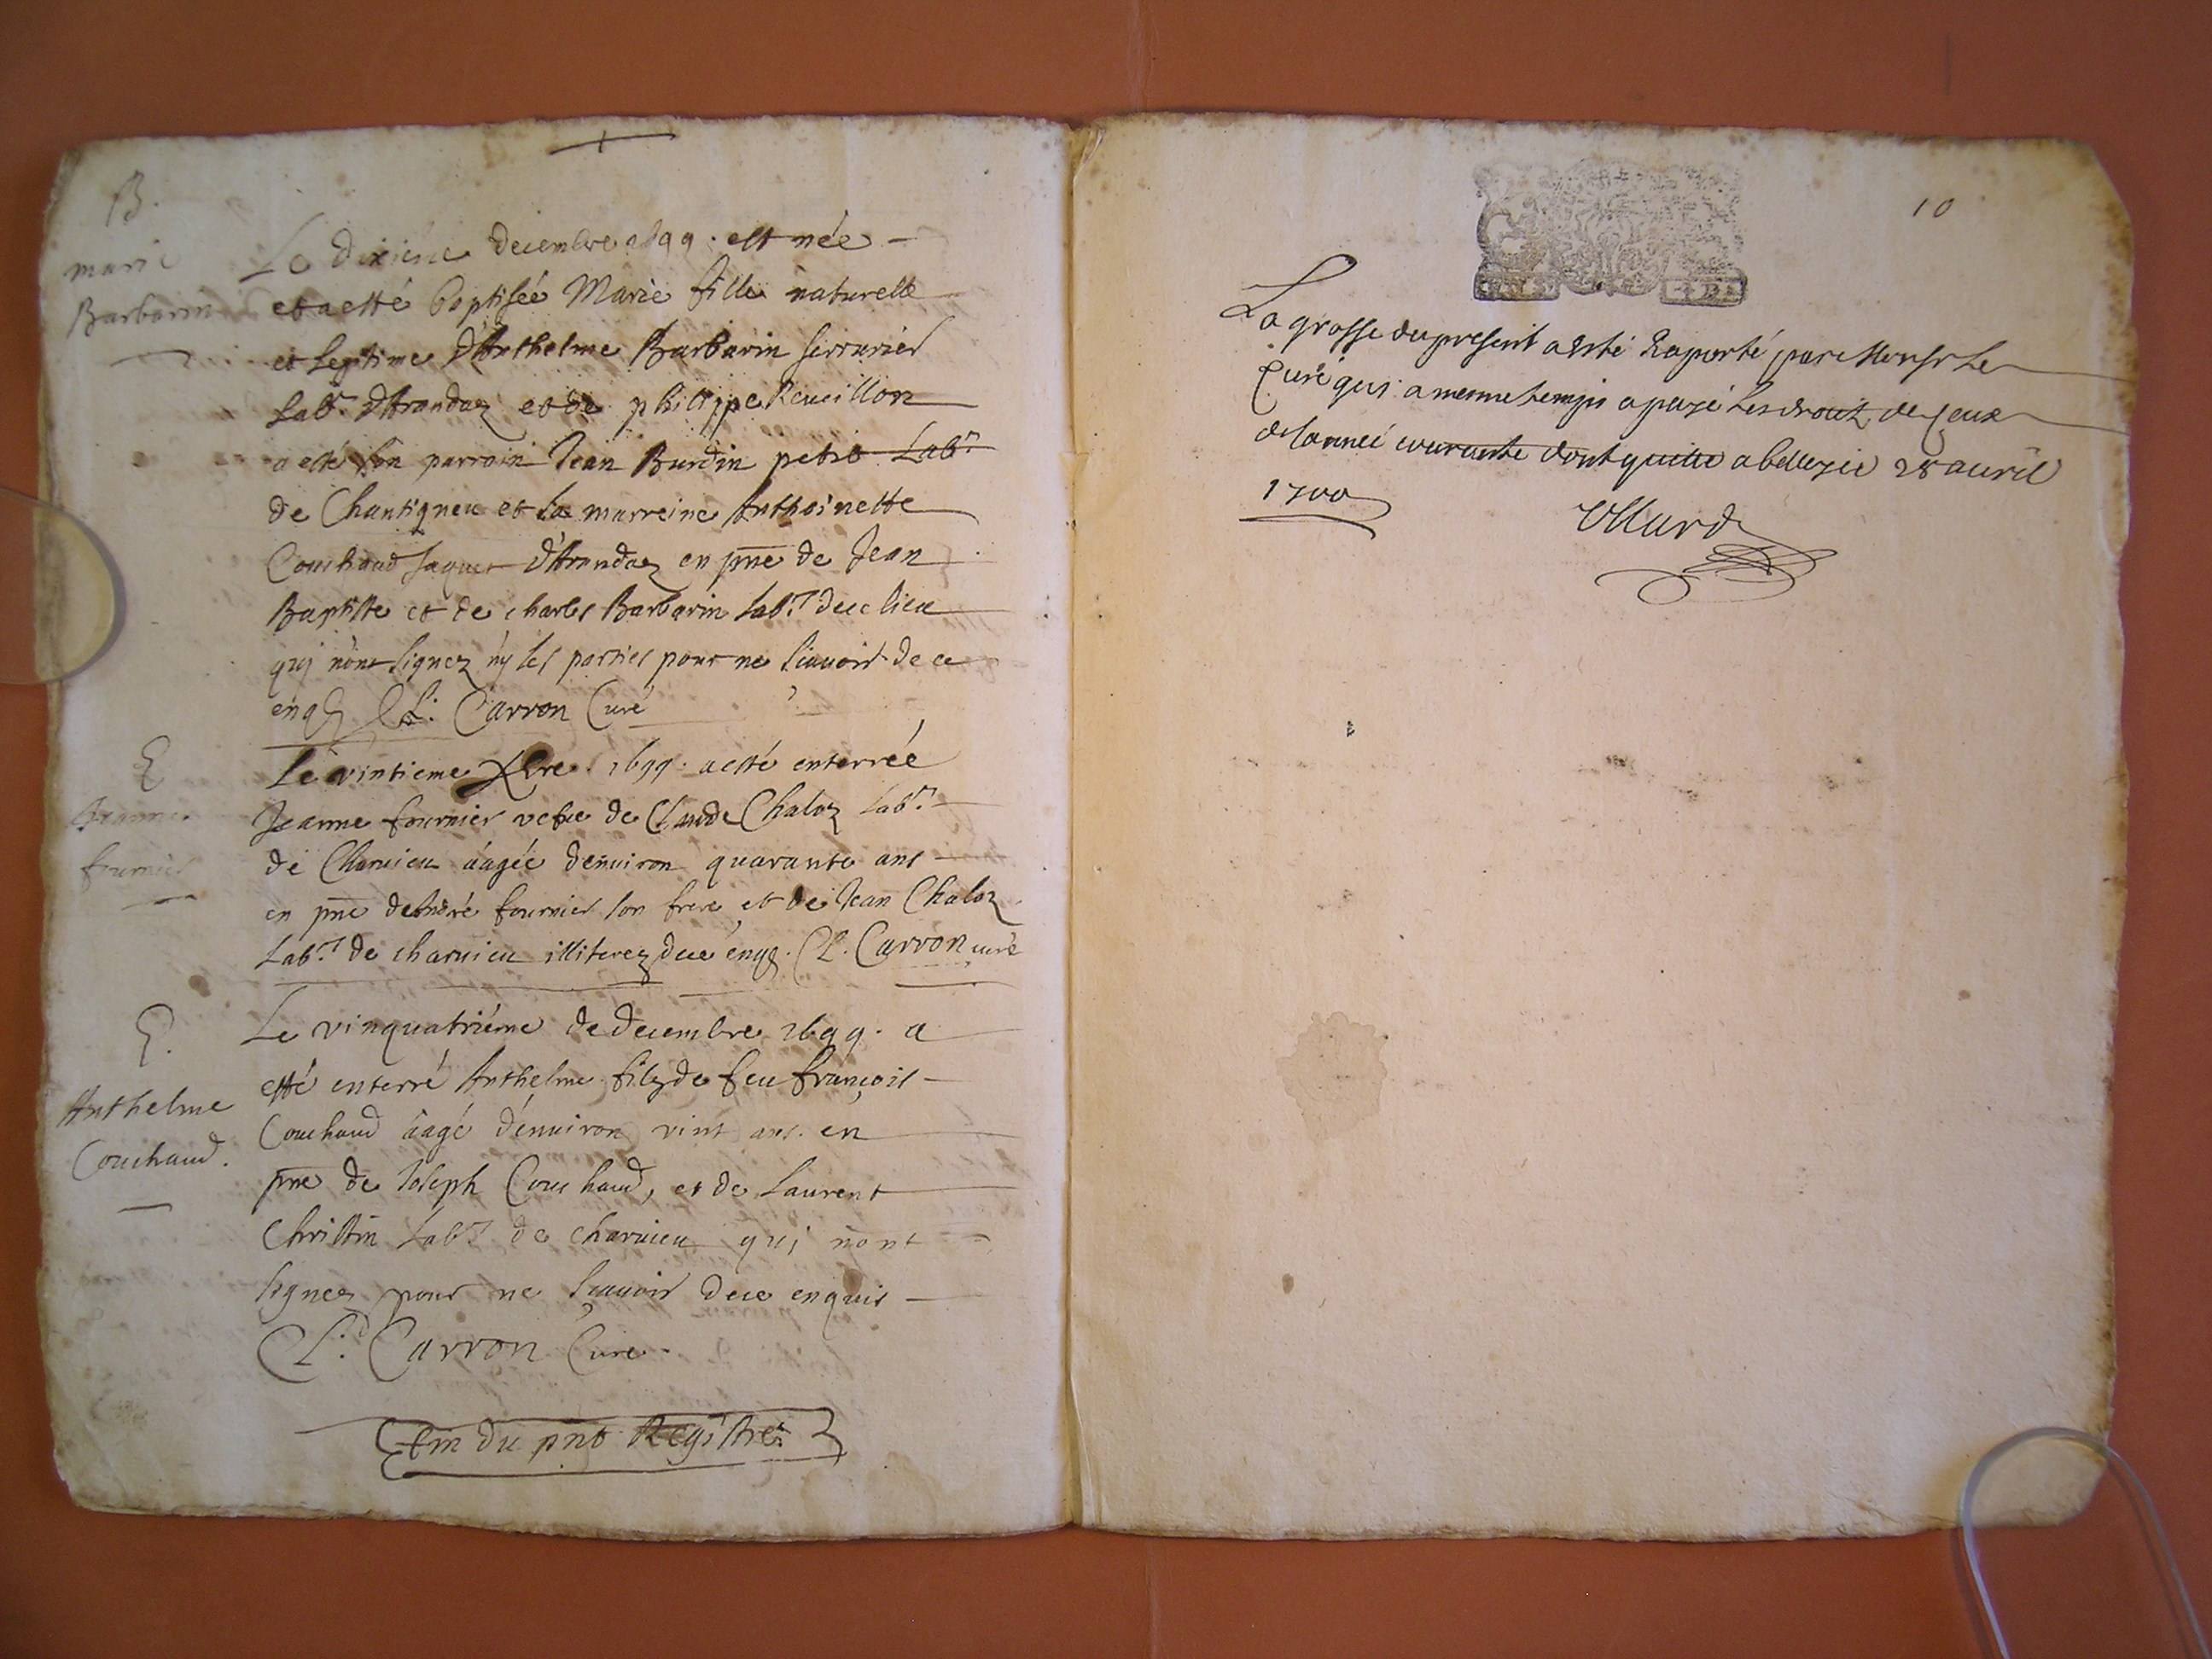 B.
marie
Barbarin
Le dixieme decembre 1699. est née
et a esté baptisée Marie fille naturelle
et legtime d'Anthelme Barbarin serrurier
Lab.r d'Arandaz et de philippe Reueillon
a esté son parrain Jean Burdin petit Lab.r
de Chantigneu et la marreine Anthoinette
Couchaud Jaquet d'Arandaz en pñe de Jean
Baptiste et de charles Barbarin lab.r du lieu
qui nont signez ny les parties pour ne scauoir de ce
enq Cl. Carron Curé
E
Jeanne
fournier
Le vintieme Xbre 1699. a esté enterrée
Jeanne fournier vefue de Claude Chaloz lab.r
de Charuieu áagée denuiron quarante ans
en pñe de André fournier son frere et de Jean Chaloz
Lab.r de charuieu illiterez de ce enqz. Cl. Carron curé
E.
Anthelme
Couchaud.
Le vinquatriéme de decembre 1699. a
esté enterré Anthelme filz de feu françois
Couchaud áagé d'enuiron vint ans. en
pñe de Joseph Couchaud, et de Laurent
Christin Lab.r de charuieu qui nont
signez pour ne scauoir de ce enquis
Cl.d Carron Curé
fin du pnt Registre
10
La grosse du present a esté Raporté par Monsr Le
Curé qui a mesme temps a payé les droit de ceux
de lannée courante dont quitte a belleyée 28 auril
1700